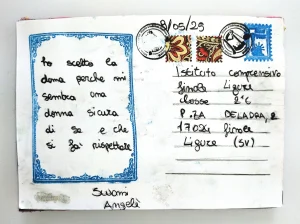 8/05/25
Io scelto la
donna perche mi
sembra una
donna sicura
di se e che
si fa rispettare
Swami
Angeli
Istituto comprensivo
Finale Ligure
classe 2°C
P.ZA
17024 Finale
Ligure (SV)